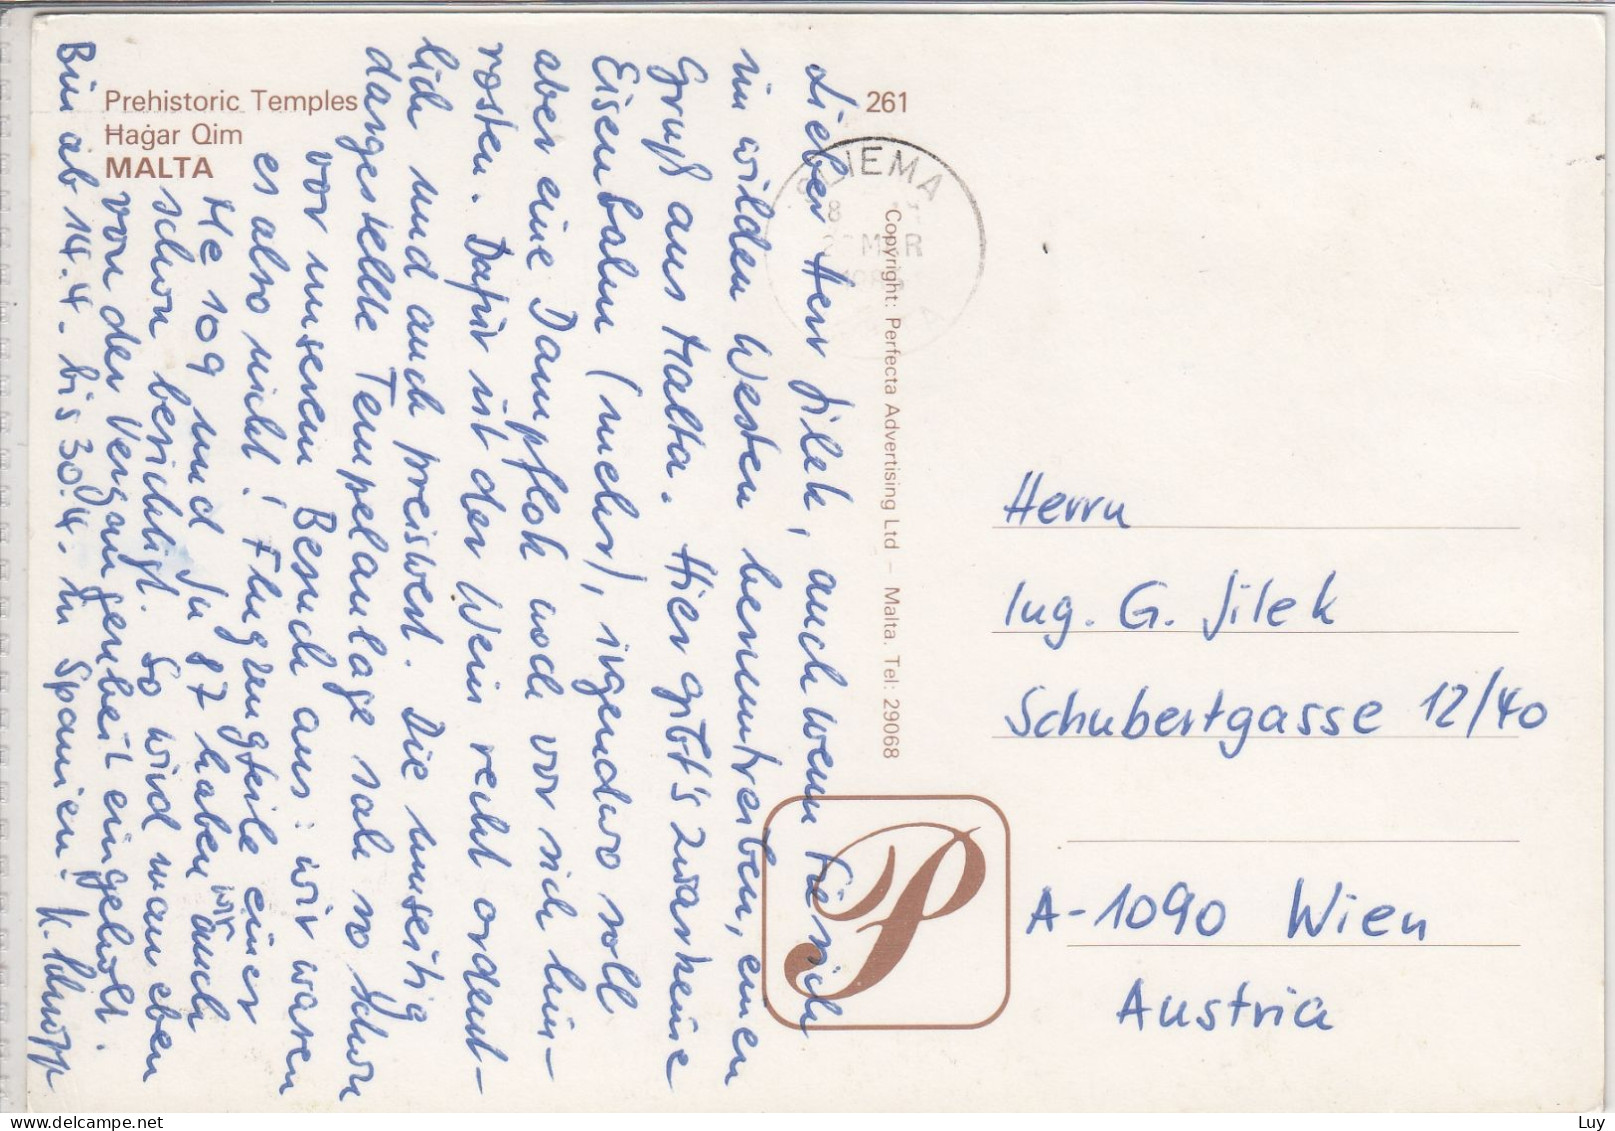 Prehistoric Temples
Ħaġar Qim
MALTA
261
SLIEMA
MAR
Copyright: Perfecta Advertising Ltd – Malta. Tel: 29068
Lieber Herr Jilek, auch wenn Sie sich
im wilden Westen herumtreiben, einen
Gruß aus Malta. Hier gibt's zwar keine
Eisenbahn (mehr), irgendwo soll
aber eine Dampflok noch vor sich hin-
rosten. Dafür ist der Wein recht ordent-
lich und auch preiswert. Die umseitig
dargestellte Tempelanlage sah so schon
vor unserem Besuch aus: wir waren
es also nicht! Flugzeugteile einer
Me 109 und Ju 87 haben wir auch
schon besichtigt. So wird man eben
von der Vergangenheit eingeholt.
Bin ab 14.4. bis 30.4. in Spanien!
Herrn
Ing. G. Jilek
Schubertgasse 12/40
A-1090 Wien
Austria
P
Luy